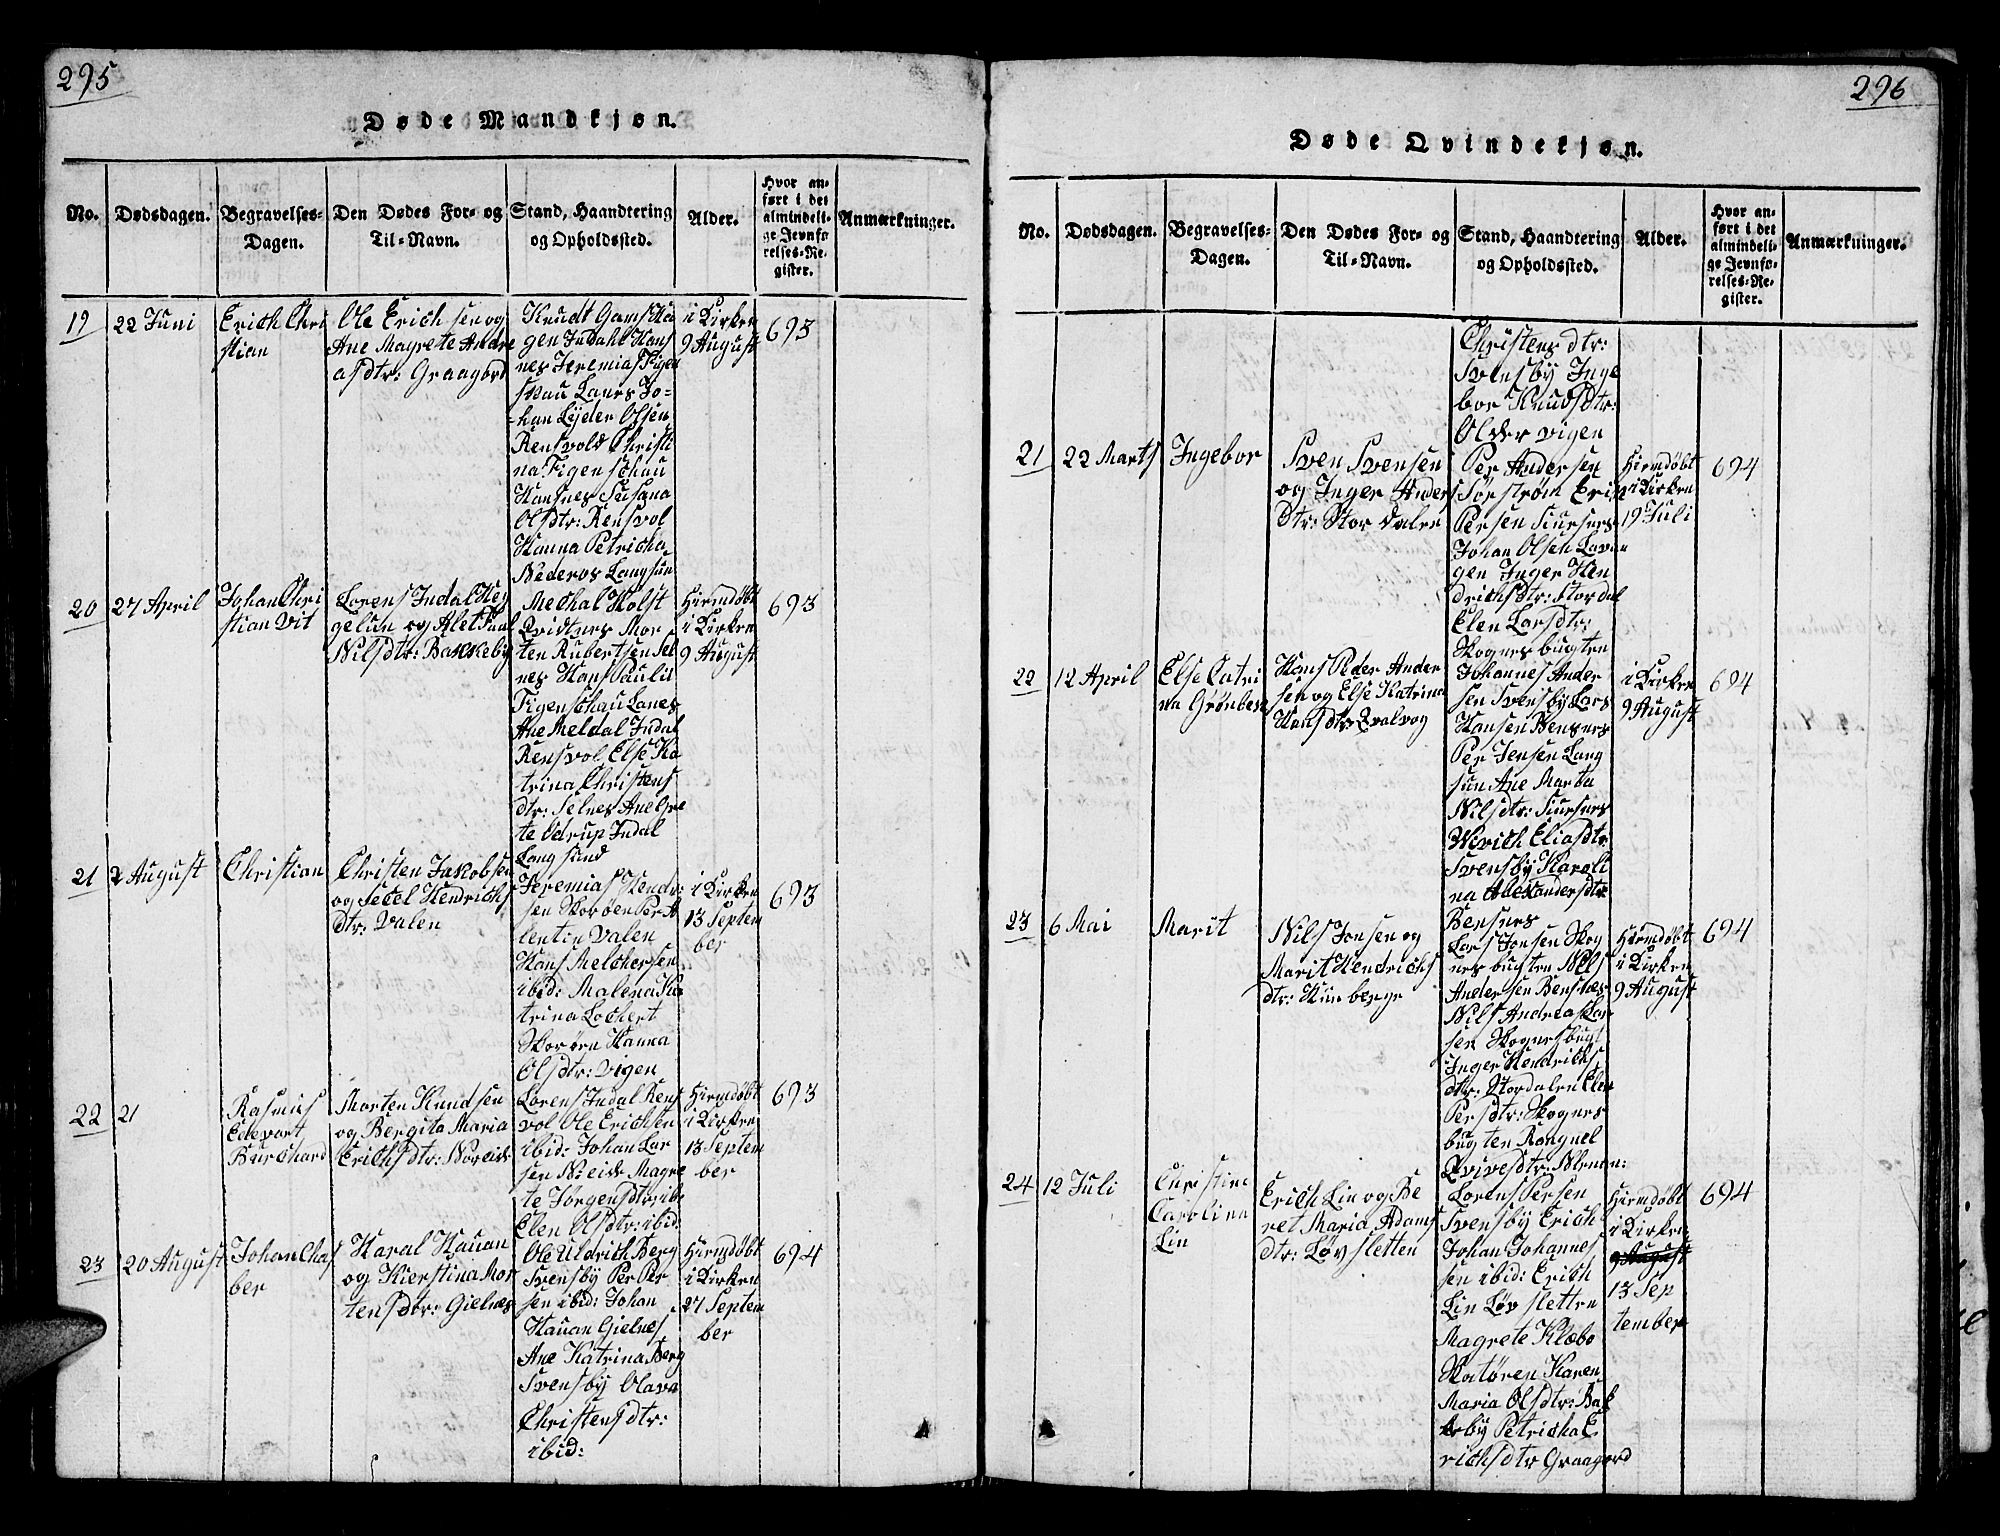 295
Døde Mandkjøn.
No.
Dødsdagen.
Begravelses-
Dagen.
Den Dødes For- og
Til-Navn.
Stand, Haandtering
og Opholdssted.
Alder.
Hvor an-
ført i det
almindeli-
ge Jevnfø-
relses-Re-
gister.
Anmærkninger.
19
22 Juni
Erich Chri
stian
Ole Erichsen og
Ane Magrete Andre
asdtr: Graagord
Knudt Gams Ha
gen Indahl Hans
nes Jeremias Figen
skau Lanes Jo-
han Lyder Olsen
Rensvold Christi
na Figenschau
Hansnes Susana
Olsdtr: Rensvol
Hanna Petricha
Nideros Langsun
i Kirken
9 August
693
20
27 April
Johan Chri
stian Vit
Lorens Indal Hey
gelun og Alet
Nilsdtr: Bakkeby
Mechal Holst
Qvidtnes Mor
ten Rubertsen Sel
nes Hans Paulu
Figenschau Lanes
Ane Meldal Indal
Rensvol Else Ka
trina Christens
dtr: Selnes Ane Gre
te Udrup Indal
Langsund
Hiemdøbt
i Kirken
9 August
693
21
2 August
Christian
Christen Jakobsen
og Setel Hendrichs
dtr: Valen
Jeremias Hendr:
sen Skorøen Per A
lentin Valen
Hans Melchersen
ibid: Malena Ka
trina Lochert
Skorøen Hanna
Olsdtr: Vigen
i Kirken
13 Septem
ber
693
22
21
Rasmus
Edevart
Burchard
Morten Knudsen
og Bergita Maria
Erichsdtr: Noreide
Lorens Indal Rens
vol Ole Erichsen
ibid: Johan Lar
sen N:eide Magre
te Jørgensdtr: ibi
Elen Olsdtr: ibid:
Hiemdøbt
i Kirken
13 Septem
ber
693
23
20 August
Johan Chas
ber
Haral Hauan
og Kierstina Mor
tensdtr: Gielnes
Ole Uldrich Berg
Svensby Per Per
sen ibid: Johan
Hauan Gielnes
Ane Katrina Berg
Svensby Olava
Christensdtr:
ibid:
Hiemdøbt
i Kirken
27 Septem
ber
694
296
Døde Qvindekjøn.
No.
Dødsdagen.
Begravelses-
Dagen.
Den Dødes For- og
Til-Navn.
Stand, Haandtering
og Opholdssted.
Alder.
Hvor an-
ført i det
almindeli-
ge Jevnfø-
relses-Re-
gister.
Anmærkninger.
Christens dtr:
Svensby Inge
bor Knudsdtr:
Oldervigen
21
22 Marts
Ingebor
Sven Svensen
og Inger Anders
dtr: Stordalen
Per Andersen
Sørstrøm Erik
Persen Siursnes
Johan Olsen Lavan
gen Inger Hen
drichsdtr: Stordal
Elen Larsdtr:
Skognesbugten
Hiemdøbt
i Kirken
19 Juli
694
22
12 April
Else Catri
na Grønbech
Hans Peder Ander
sen og Else Katrina
Hansdtr: Qvalvog
Johannes Ander
sen Svensby Lars
Hansen Bensnes
Per Jensen Lang
sun Ane Marta
Nilsdtr: Siursnes
Wirich Eliasdtr
Svensby Karoli
na Alexandersdtr
Bensnes
i Kirken
9 August
694
23
6 Mai
Marit
Nils Jonsen og
Marit Hendrichs
dtr: Kimberge
Lars Jonsen Skog
nesbugten Nils
Andersen Bensnes
Nils Andreas Lar
sen Skognesbugt
Inger Hendrichs
dtr: Stordalen Elen
Persdtr: Skognes
bugten Rangnel
Qvivesdtr: Nlmen:
Hiemdøbt
i Kirken
9 August
694
24
12 Juli
Christine
Carolina
Lin
Erich Lin og Be
ret Maria Adams
dtr: Løvsletten
Lorens Persen
Svensby Erich
Johan Johannes
sen ibid: Erich
Lin Løvsletten
Magrete Klæbo
Skatøren Karen
Maria Olsdtr: Bak
keby Petricha E
richsdtr Graagord
Hiemdøbt
i Kirken:
9 August
13 Sep
tember
694